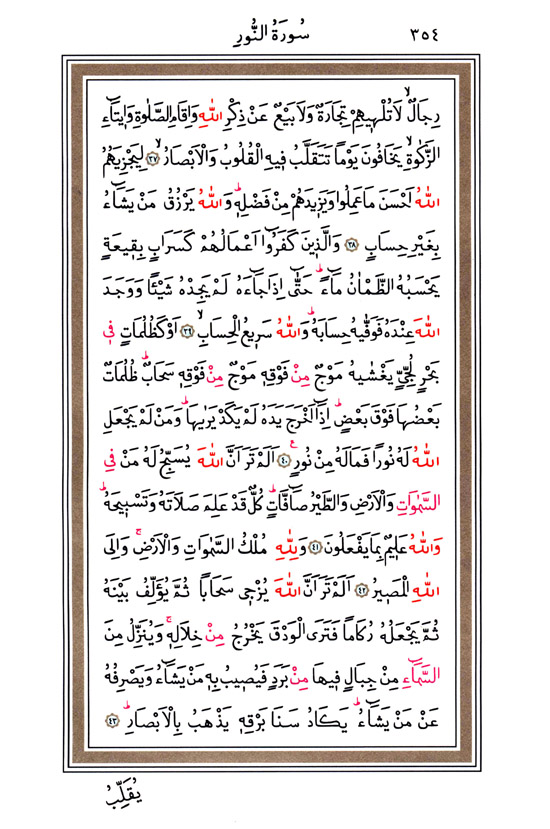 ٣٥٤ سُورَةُ النُّورِ
رِجَالٌ لَا تُلْهٖيهِمْ تِجَارَةٌ وَلَا بَيْعٌ عَنْ ذِكْرِ اللّٰهِ وَاِقَامِ الصَّلٰوةِ وَاٖيتَٓاءِ
الزَّكٰوةِۙ يَخَافُونَ يَوْمًا تَتَقَلَّبُ فٖيهِ الْقُلُوبُ وَالْاَبْصَارُۙ ﴿٣٧﴾ لِيَجْزِيَهُمُ
اللّٰهُ اَحْسَنَ مَا عَمِلُوا وَيَزٖيدَهُمْ مِنْ فَضْلِهٖؕ وَاللّٰهُ يَرْزُقُ مَنْ يَشَٓاءُ
بِغَيْرِ حِسَابٍ ﴿٣٨﴾ وَالَّذٖينَ كَفَرُٓوا اَعْمَالُهُمْ كَسَرَابٍ بِقٖيعَةٍ
يَحْسَبُهُ الظَّمْاٰنُ مَٓاءًؕ حَتّٰٓى اِذَا جَٓاءَهُ لَمْ يَجِدْهُ شَيْـًٔا وَوَجَدَ
اللّٰهَ عِنْدَهُ فَوَفّٰيهُ حِسَابَهُؕ وَاللّٰهُ سَرٖيعُ الْحِسَابِۙ ﴿٣٩﴾ اَوْ كَظُلُمَاتٍ فٖي
بَحْرٍ لُجِّيٍّ يَغْشٰيهُ مَوْجٌ مِنْ فَوْقِهٖ مَوْجٌ مِنْ فَوْقِهٖ سَحَابٌؕ ظُلُمَاتٌ
بَعْضُهَا فَوْقَ بَعْضٍؕ اِذَٓا اَخْرَجَ يَدَهُ لَمْ يَكَدْ يَرٰيهَاؕ وَمَنْ لَمْ يَجْعَلِ
اللّٰهُ لَهُ نُورًا فَمَا لَهُ مِنْ نُورٍࣖ ﴿٤٠﴾ اَلَمْ تَرَ اَنَّ اللّٰهَ يُسَبِّحُ لَهُ مَنْ فِي
السَّمٰوَاتِ وَالْاَرْضِ وَالطَّيْرُ صَٓافَّاتٍؕ كُلٌّ قَدْ عَلِمَ صَلَاتَهُ وَتَسْبٖيحَهُؕ
وَاللّٰهُ عَلٖيمٌ بِمَا يَفْعَلُونَ ﴿٤١﴾ وَلِلّٰهِ مُلْكُ السَّمٰوَاتِ وَالْاَرْضِۚ وَاِلَى
اللّٰهِ الْمَصٖيرُ ﴿٤٢﴾ اَلَمْ تَرَ اَنَّ اللّٰهَ يُزْجٖي سَحَابًا ثُمَّ يُؤَلِّفُ بَيْنَهُ
ثُمَّ يَجْعَلُهُ رُكَامًا فَتَرَى الْوَدْقَ يَخْرُجُ مِنْ خِلَالِهٖۚ وَيُنَزِّلُ مِنَ
السَّمَٓاءِ مِنْ جِبَالٍ فٖيهَا مِنْ بَرَدٍ فَيُصٖيبُ بِهٖ مَنْ يَشَٓاءُ وَيَصْرِفُهُ
عَنْ مَنْ يَشَٓاءُؕ يَكَادُ سَنَا بَرْقِهٖ يَذْهَبُ بِالْاَبْصَارِؕ ﴿٤٣﴾
يُقَلِّبُ